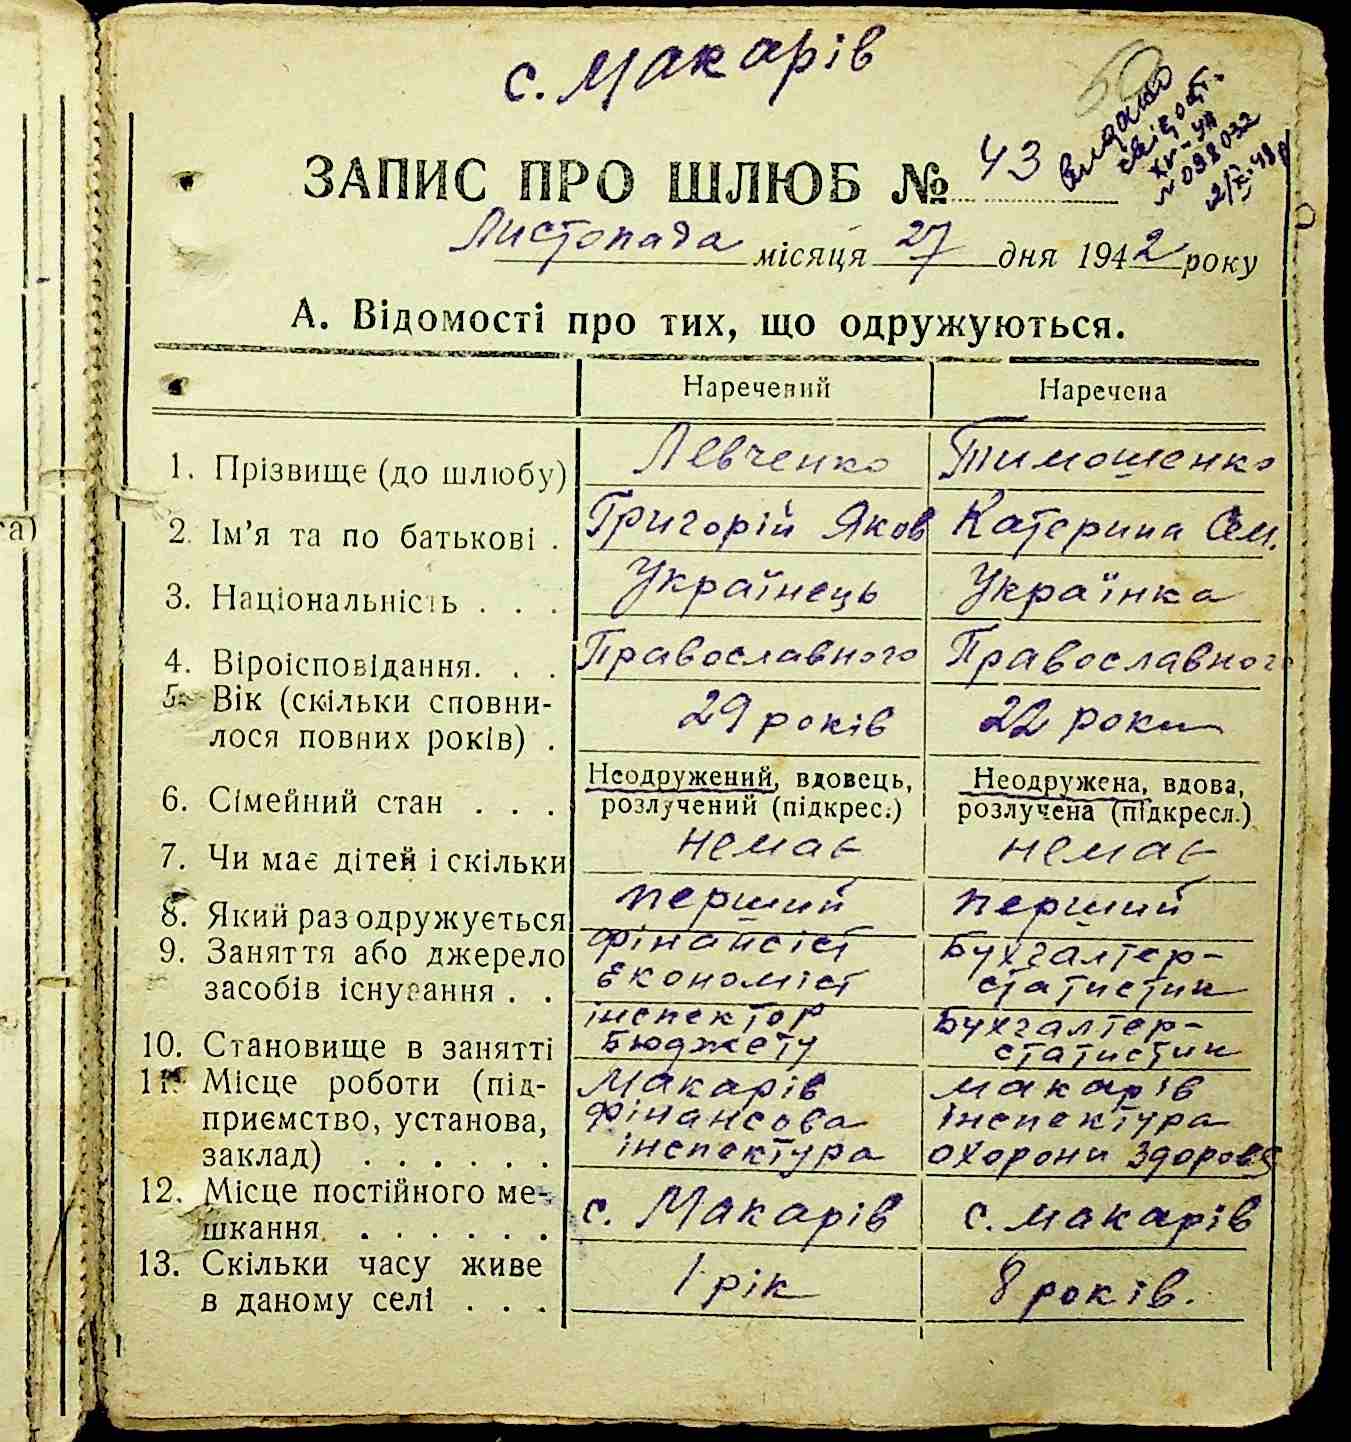 с. Макарів
50
видано
свідоцт.
ХІ-УА
№ 098032
2/Х-48 р
ЗАПИС ПРО ШЛЮБ № 43
Листопада місяця 27 дня 1942 року
А. Відомості про тих, що одружуються.
Наречений Наречена
1. Прізвище (до шлюбу) Левченко Тимошенко
2. Ім'я та по батькові . Григорій Яков Катерина Сем.
3. Національність . . . Українець Українка
4. Віроісповідання. . . Православного Православного
5. Вік (скільки сповни-
лося повних років) . 29 років 22 роки
6. Сімейний стан . . . Неодружений, вдовець, Неодружена, вдова,
розлучений (підкрес.) розлучена (підкресл.)
7. Чи має дітей і скільки немає немає
8. Який раз одружується перший перший
9. Заняття або джерело фінансіст Бухгалтер-
засобів існування . . економіст статистик
10. Становище в занятті інспектор Бюджету Бухгалтер-статистик
11. Місце роботи (під- Макарів макарів
приємство, установа, фінансова інспектура
заклад) . . . . . . інспектура охорони здоровя
12. Місце постійного ме-
шкання . . . . . . с. Макарів с. макарів
13. Скільки часу живе
в даному селі . . . 1 рік 8 років.
га)